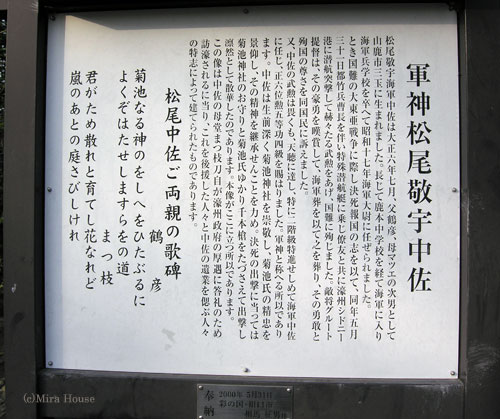 軍神松尾敬宇中佐
松尾敬宇海軍中佐は大正六年七月、父鶴彦、母マツエの次男として
山鹿市三玉に生まれました。長じて鹿本中学校を経て海軍に入り
海軍兵学校を卒へて昭和十七年海軍大尉に任ぜられました。
とき国難の大東亜戦争に際し決死報国の志を以て、同年五月
三十一日都竹兵曹長を伴い特殊潜航艇に乗じ僚友と共に濠洲シドニー
港に潜航突撃して赫々たる武勲をあげ、国難に殉じました。敵将グルート
提督は、その豪勇を嘆賞して、海軍葬を以て之を葬り、その勇敢と
殉国の尊さを同国民に訴えました。
又、中佐の武勲は畏くも、天聴に達し、特に二階級特進せしめて海軍中佐
に任じ、正六位勲五等功四級を賜はりました。軍神と称へる所以であり
ます。中佐は生前深く菊池神社を崇敬し、菊池氏の精忠を
景仰し、その精神を継承せんことを力め、決死の出撃に当っては
菊池神社のお守りと菊池氏ゆかり千本槍をたづさえて出撃し
凛然として散華したのであります。本像がここに立つ所以であります。
この像は中佐の母堂まつ枝刀自が濠州政府の厚遇に答礼のため
訪濠されるに当り、これを後援した人々と中佐の遺業を偲ぶ人々
の特志によって建てられたものであります。
松尾中佐ご両親の歌碑
鶴彦
菊池なる神のをしへをひたぶるに
よくぞはたせしますらをの道
まつ枝
君がため散れと育てし花なれど
嵐のあとの庭さびしけれ
奉納
2000年5月31日
彩の国・川口市
(c)Mira House